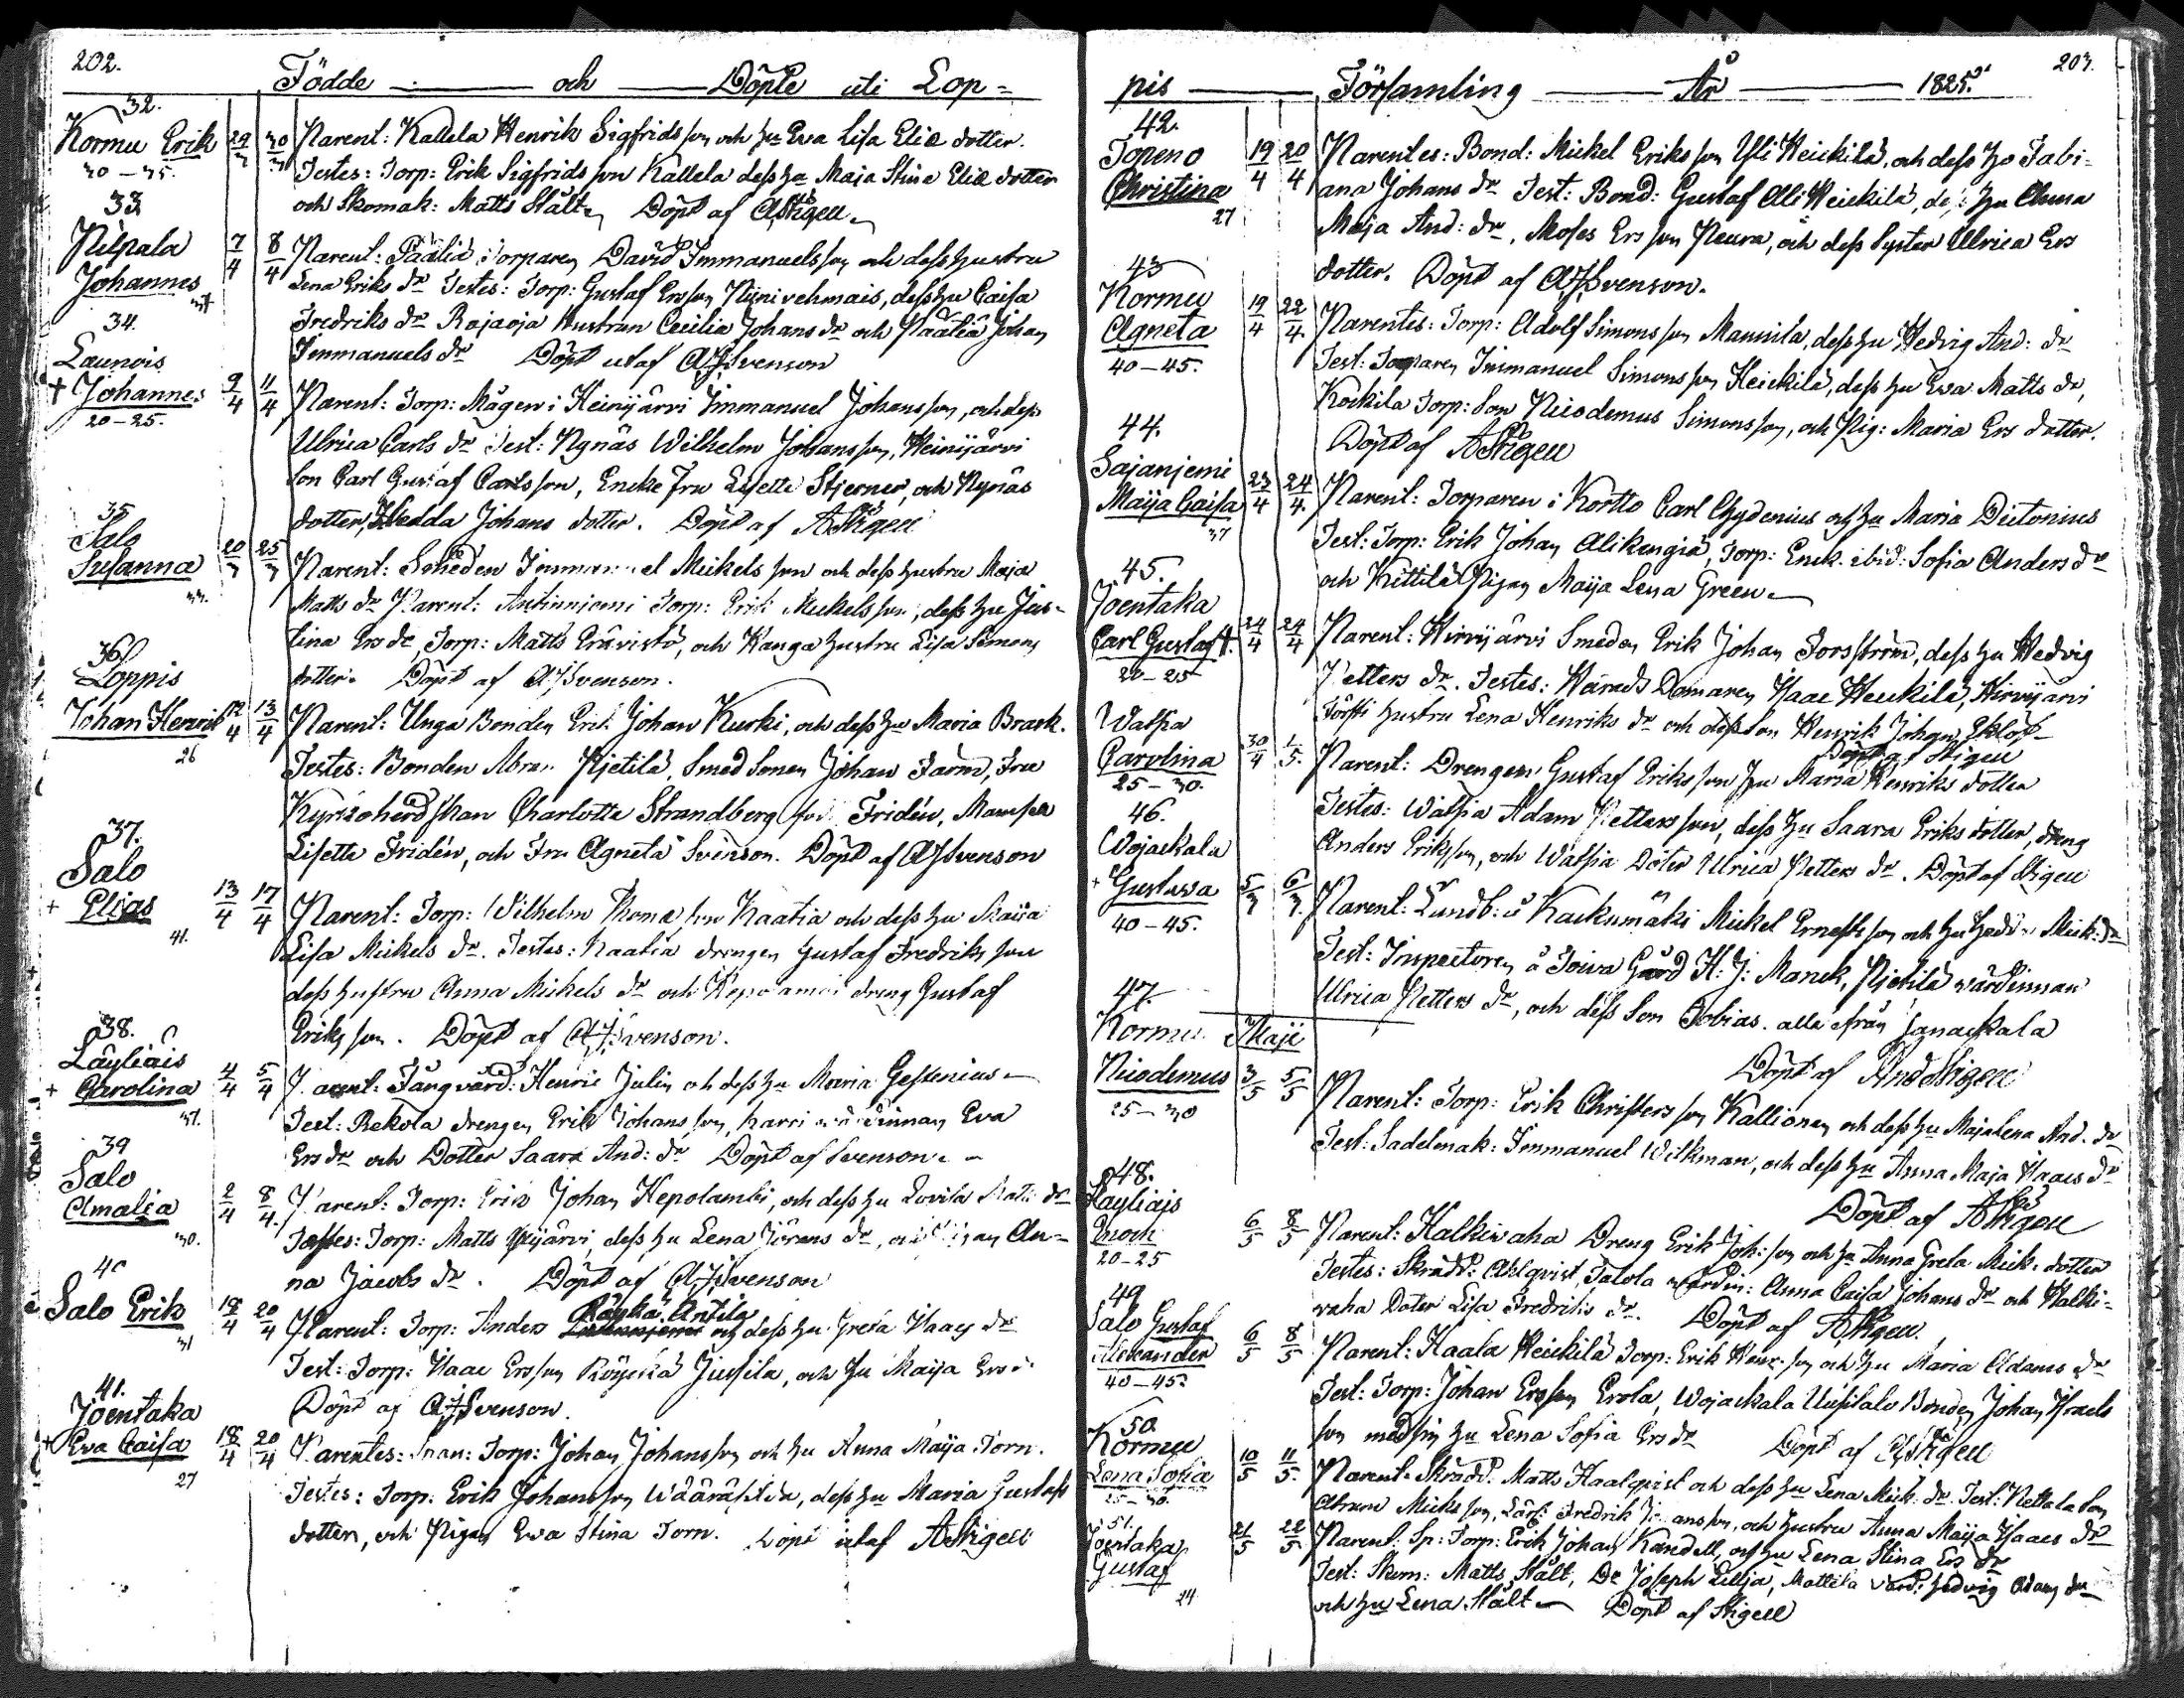 202.
Födde och Döpte uti Lop=
32.
Kormu Erik 29/3 30/3 Parent: Kallela Henrik Sigfrids son och hu Eva Lisa Eliæ dotter.
30-35. Testes: Torp: Erik Sigfrids son Kallela dess hu Maja Stina Eliæ dotter
och Skomak: Matts Stålt, Döpt af AStigell
33
Pilpala 7/4 8/4 Parent: Päätiä Torparen David Immanuelsson och dess hustru
Johannes Lena Eriks dr Testes: Torp: Gustaf Ersson Niinivehmais, dess hu Caisa
Fredriks dr Rajaoja Hustrun Cecilia Johans dr och Päätiä Johan
34.
Launois Immanuels dr Döpt utaf AJSvenson
+ Johannes 9/4 11/4 Parent: Torp: Mågen i Heinijärvi Immanuel Johansson, och dess
20-25. Ulrica Carls dr Test: Nynäs Wilhelm Johansson, Heinijärvi
Son Carl Gustaf Carlsson, Encke Fru Lisette Stjerner, och Nynäs
35
dotter, Hedda Johans dotter. Döpt af AStigell
Salo
Susanna 20/3 25/3 Parent: Smeden Immanuel Mickels son och dess hustru Maja
Matts dr Parent: Antinniemi Torp: Erik Mickelsson, dess hu Jus-
tina Ers dr, Torp: Matts Erävistö, och Kanga hustru Lisa Simons
36
Loppis dotter. Döpt af AJSvenson.
Johan Henrik 12/4 13/4 Parent: Unga Bonden Erik Johan Kurki, och dess hu Maria Brask.
26 Testes: Bonden Abram Pietilä, Smed Sonen Johan Farm, Fru
Kyrkoherdskan Charlotta Strandberg född Fridén, Mamsell
37.
Lisette Fridén, och Fru Agneta Svenson. Döpt af AJSvenson
Salo
+ Elias 13/4 17/4 Parent: Torp: Wilhelm Thomæ son Kaatia och dess hu Maija
41. Lisa Mickels dr. Testes: Kaatia drengen Gustaf Fredriks son
dess hustru Anna Mickels dr och Hepolamni dreng Gustaf
38.
Eriks son. Döpt af AJSvenson.
Läyliäis
+ Carolina 4/4 5/4 Parent: Fångvård: Henric Julin och dess hu Maria Gestenius
37. Test: Rekola drengen Erik Johans son, Harri värdinnan Eva
39
Ers dr och Dotter Saara And: dr Döpt af Svenson.
Salo
Amalia 2/4 8/4 Parent: Torp: Erik Johan Hepolambi, och dess hu Lovisa Matts dr
30. Testes: Torp: Matts Ylijärvi, dess hu Lena Jörans dr, och Pigan An=
na Jacobs dr. Döpt af AJSvenson
40
Räyskä Antila
Salo Erik 18/4 20/4 Parent: Torp: Anders och dess hu Greta Isaacs dr
31 Test: Torp: Isaac Ersson Röyskä Jussila, och hu Maija Ers dr
41.
Döpt af AJSvenson.
Joentaka
+ Eva Caisa 18/4 20/4 Parentes: Torp: Johan Johansson och hu Anna Maija Torn.
27 Testes: Torp: Erik Johansson Wäärässilda, dess hu Maria Gustafs
dotter, och Pigan Eva Stina Torn. Döpt utaf AStigell
203.
pis Församling År 1825.
42.
Topeno 19/4 20/4 Parentes: Bond: Mickel Eriks son Yli Heickilä, och dess hu Fabi-
Christina ana Johans dr Test: Bond: Gustaf Ali Heickilä, dess hu Anna
27 Maja And: dr, Moses Ersson Neura, och dess Syster Ulrica Ers
43
dotter. Döpt af AJSvenson.
Kormu
Agneta 19/4 22/4. Parentes: Torp: Adolf Simons son Mannila, dess hu Hedvig And: dr
40-45. Test: Torparen Immanuel Simons son Heickilä, dess hu Eva Matts dr,
Kockila Torp: Son Nicodemus Simonsson, och Pig: Maria Ers dotter.
44.
Döpt af AStigell
Sajaniemi
Maija Caisa 23/4 24/4. Parent: Torparen i Kortto Carl Chydenius och hu Maria Deutonius
37 Test: Torp: Erik Johan Alikengiä, Torp: Enck. ibid: Sofia Anders dr
45.
och Kittilä Pigan Maija Lena Green.
Joentaka
Carl Gustaf +. 24/4 24/4 Parent: Hirvijärvi Smeden Erik Johan Forsström, dess hu Hedvig
20-25 Petters dr. Testes: Härads Domaren Isaac Heickilä, Hirvijärvi
Förste hustru Lena Henriks dr och dess Son Henrik Johan Eklöf
Döpt af Stigell
Watsia
Carolina 30/4 1/5. Parent: Drengen Gustaf Eriksson hu Maria Henriks dotter
25-30. Testes: Watsia Adam Petters son, dess hu Saara Eriks dotter, dreng
46.
Anders Eriksson, och Watsia Doter Ulrica Petters dr. Döpt af Stigell
Wojackala
+ Gustava 5/3 6/3. Parent: Landb: å Kackumäki Mickel Ernstsson och hu Hedda Mick: dr
40-45. Test: Inspectoren å Toiva Gård H: J: Manck, Pietilä värdinnan
Ulrica Petters dr, och dess Son Tobias. alla från Janackala
Döpt af And Stigell
47.
Kormu Maji
Nicodemus 3/5 5/5 Parent: Torp: Erik Christers son Kallionen och dess hu Maja Lena And. dr
25-30 Test: Sadelmak: Immanuel Wilkman, och dess hu Anna Maja Isaacs dr
Döpt af AStigell
48.
Läyliäis
Enoch 6/5 8/5 Parent: Halkivaha Dreng Erik Joh: son och hu Anna Greta Mick: dotter
20-25 Testes: Skrädd: Ahlqvist, Talola värdin: Anna Caisa Johans dr och Halki-
vaha Doter Lisa Fredriks dr. Döpt af AStigell.
49
Salo Gustaf
Alexander 6/5 8/5 Parent: Kaala Heickilä Torp: Erik Henr: son och hu Maria Adams dr
40-45. Test: Torp: Johan Ersson Erola, Wojackala Uusitalo Bonden Johan Israels
son med sin hu Lena Sofia Ers dr Döpt af AStigell
50.
Kormu
Lena Sofia 10/5 11/5. Parent: Skrädd. Matts Haalqvist och dess hu Lena Mick: dr. Test: Nettala Son
25-30. Abram Micks son, Lärl: Fredrik Johansson, och hustru Anna Maija Isaacs dr
51.
Joentaka 21/5 22/5. Parent: Sp: Torp: Erik Johan Kandell, och hu Lena Stina Ers dr
Gustaf Test: Skom: Matts Stålt, Dr Joseph Lillja, Mattila värd: Hedvig Adams dr
24 och hu Lena Stålt. Döpt af Stigell